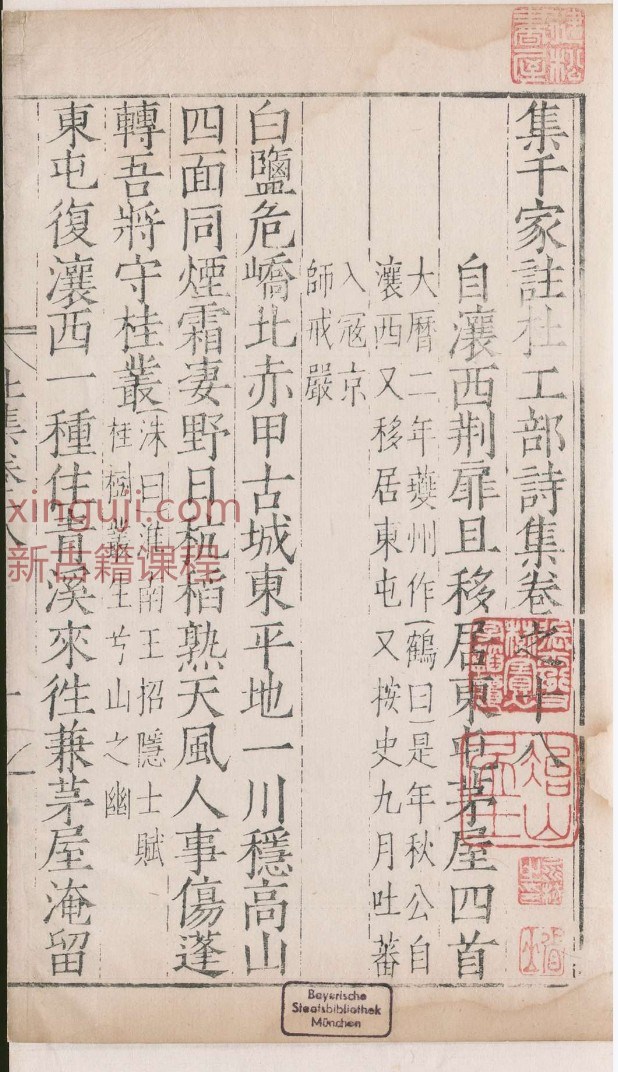 集千家註杜工部詩集卷之十八
自瀼西荆扉且移居東屯茅屋四首
大曆二年夔州作鶴曰是年秋公自
瀼西又移居東屯又按史九月吐蕃
入寇京
師戒嚴
白鹽危嶠北赤甲古城東平地一川穩高山
四面同煙霜凄野日秔稻熟天風人事傷蓬
轉吾將守桂叢
洙曰淮南王招隱士賦
桂樹叢生兮山之幽
東屯復瀼西一種住青溪來徃兼茅屋淹留
xinguji.com
新古籍课程
Bayerische
Staatsbibliothek
München